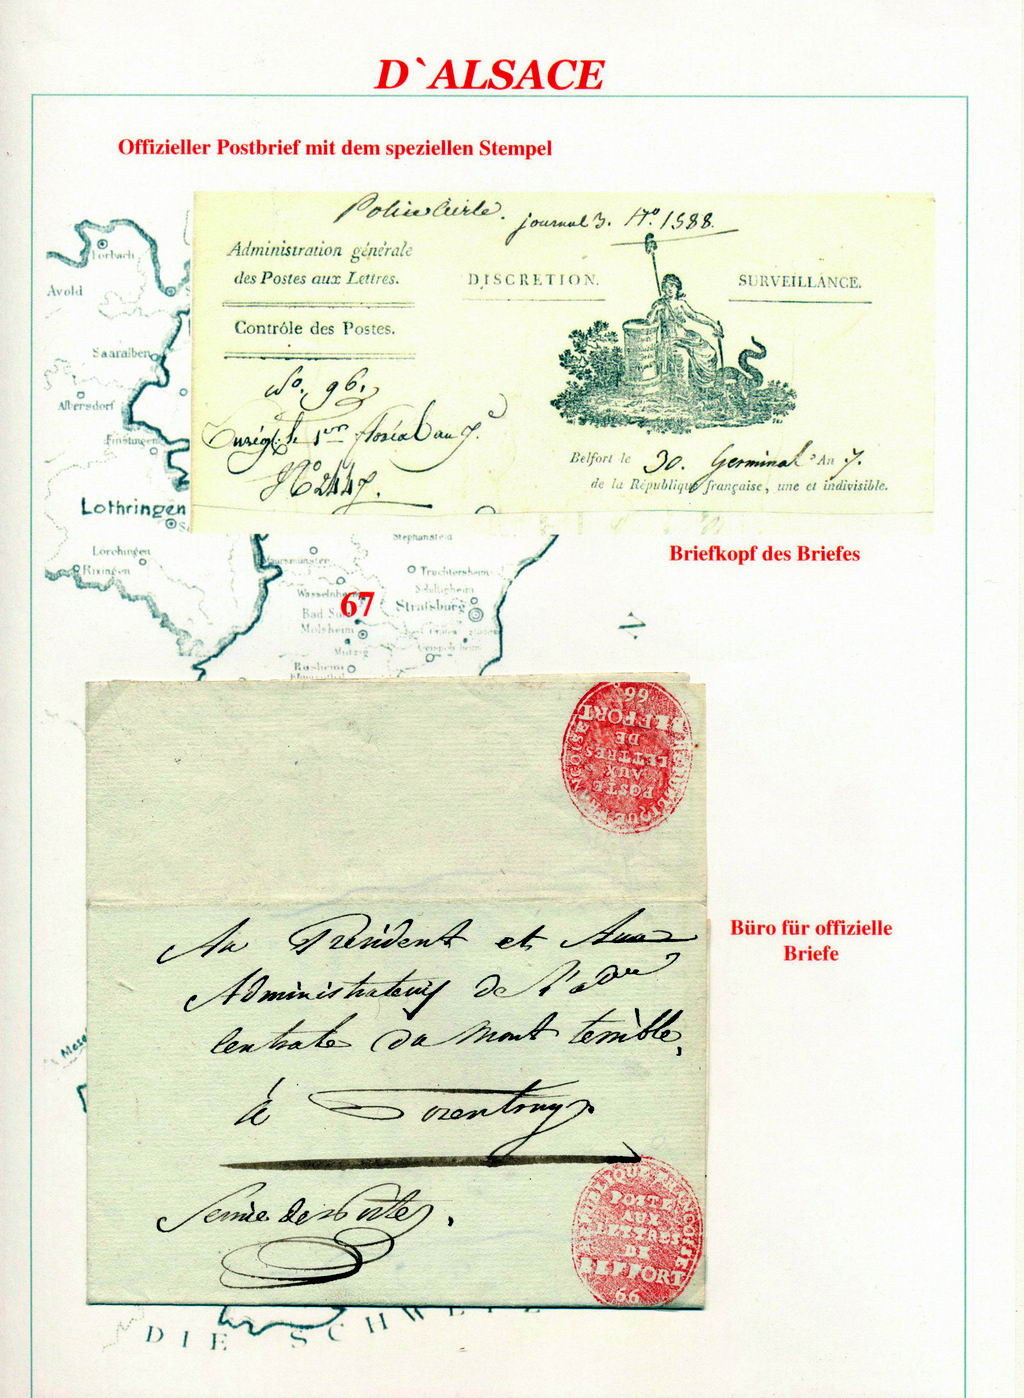 D`ALSACE
Offizieller Postbrief mit dem speziellen Stempel
journal 3. N.º 1588.
Administration générale
des Postes aux Lettres.
DISCRETION.
SURVEILLANCE.
Contrôle des Postes.
No. 96.
Enrég. le 1er floréal an 7.
Nº 2447.
Belfort le 30. Germinal An 7.
de la République française, une et indivisible.
Forbach
Avold
Saaralben
Albersdorf
Finstingen
Lothringen
Lörchingen
Rixingen
Stephansfeld
Truchtersheim
Schiltigheim
Wasselnheim
Strassburg
Bad Sulz
Molsheim
Mutzig
Rosheim
Briefkopf des Briefes
67
66
BEFFORT
DE
LETTRES
AUX
POSTE
Au Président et Aux
Administrateurs de l'adon
Centrale du Mont terrible,
à Porentruy
Service des Postes.
REPUBLIQUE FRANÇOISE
POSTE
AUX
LETTRES
DE
BEFFORT
66
Büro für offizielle
Briefe
DIE SCHWEIZ